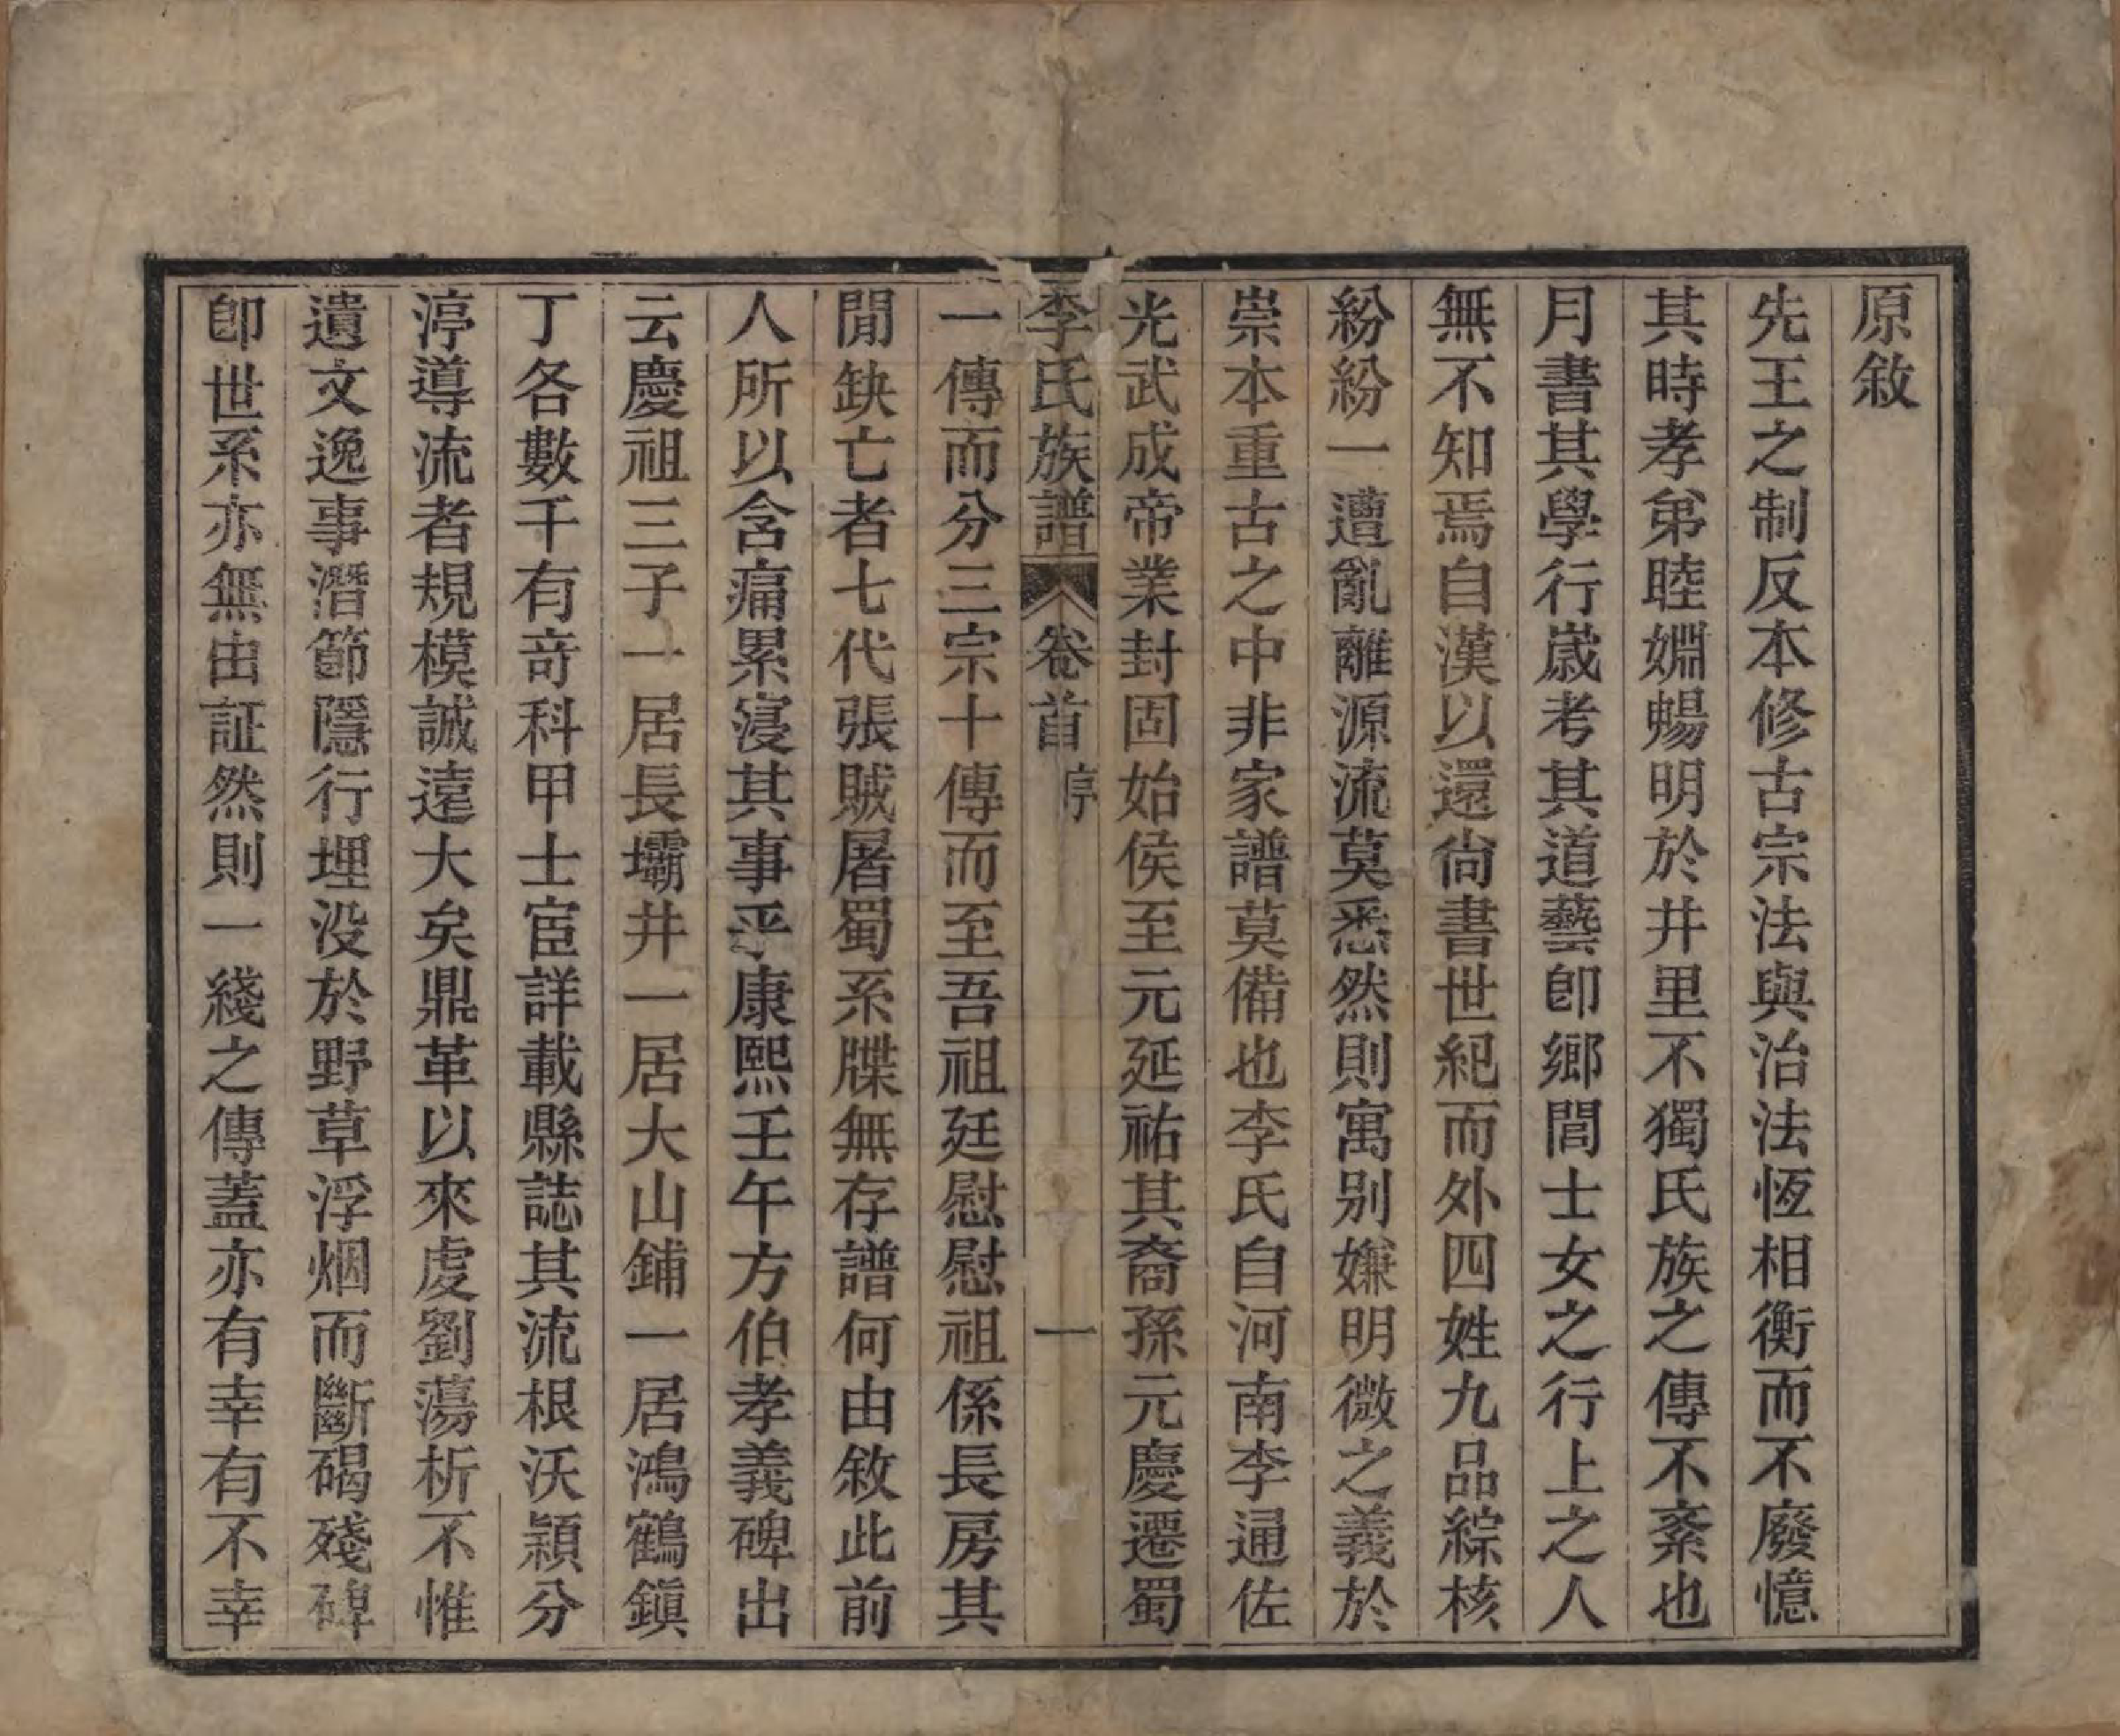 原敘
先王之制反本修古宗法與治法恆相衡而不廢憶
其時孝弟睦婣暢明於井里不獨氏族之傳不紊也
月書其學行歲考其道藝卽鄉閭士女之行上之人
無不知焉自漢以還尙書世紀而外四姓九品綜核
紛紛一遭亂離源流莫悉然則寓別嫌明微之義於
崇本重古之中非家譜莫備也李氏自河南李通佐
光武成帝業封固始侯至元延祐其裔孫元慶遷蜀
李氏族譜 卷首 序 一
一傳而分三宗十傳而至吾祖廷慰慰祖係長房其
閒缺亡者七代張賊屠蜀系牒無存譜何由敘此前
人所以含痛累寖其事乎康熙壬午方伯孝義碑出
云慶祖三子一居長壩井一居大山鋪一居鴻鶴鎭
丁各數千有竒科甲士宦詳載縣誌其流根沃穎分
渟導流者規模誠遠大矣鼎革以來虔劉蕩析不惟
遺文逸事潛節隱行埋沒於野草浮烟而斷碣殘碑
卽世系亦無由証然則一綫之傳蓋亦有幸有不幸